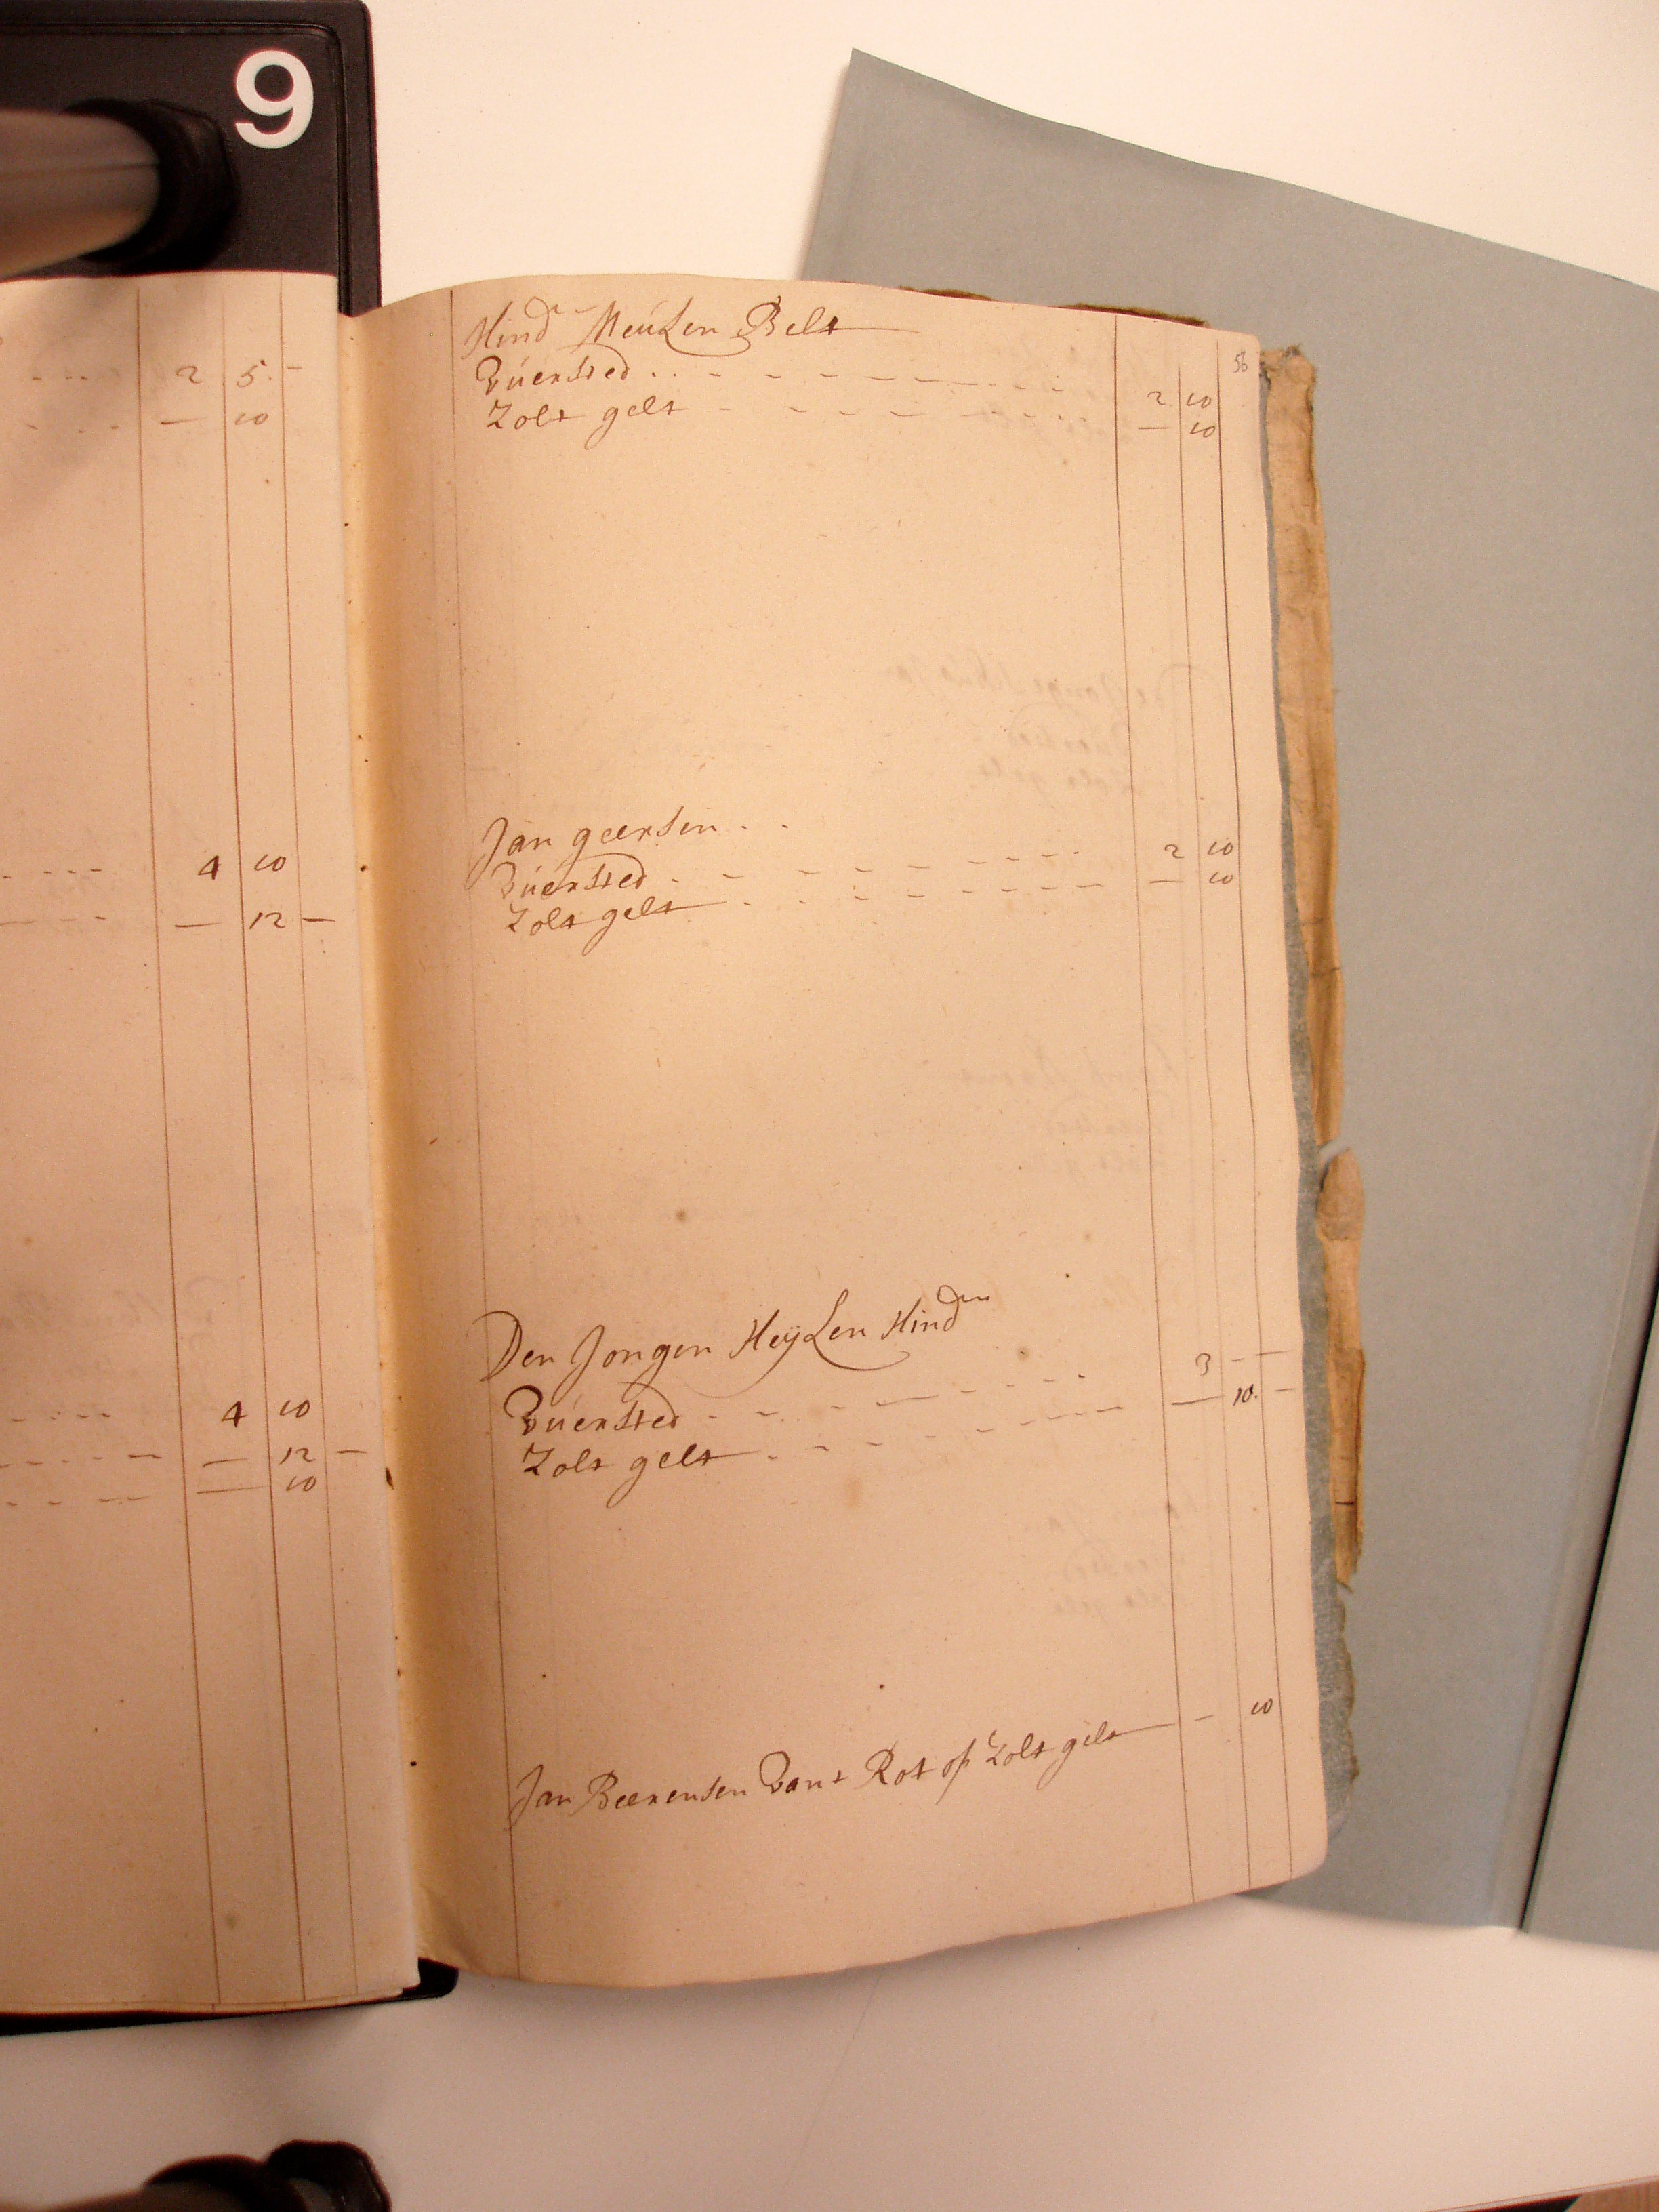 9
2 5. -
— 10
4 10
— 12 —
4 10
— 12 —
— 10
56
Hindr Meulen Belt
Vuersted 2 10
Zolt gelt — 10
Jan geersen
Vuersted 2 10
Zolt gelt — 10
Den Jongen Heijlen Hindr
Vuersted 3 - —
Zolt gelt — 10. —
Jan Beerensen Vant Rot op Zolt gelt — 10